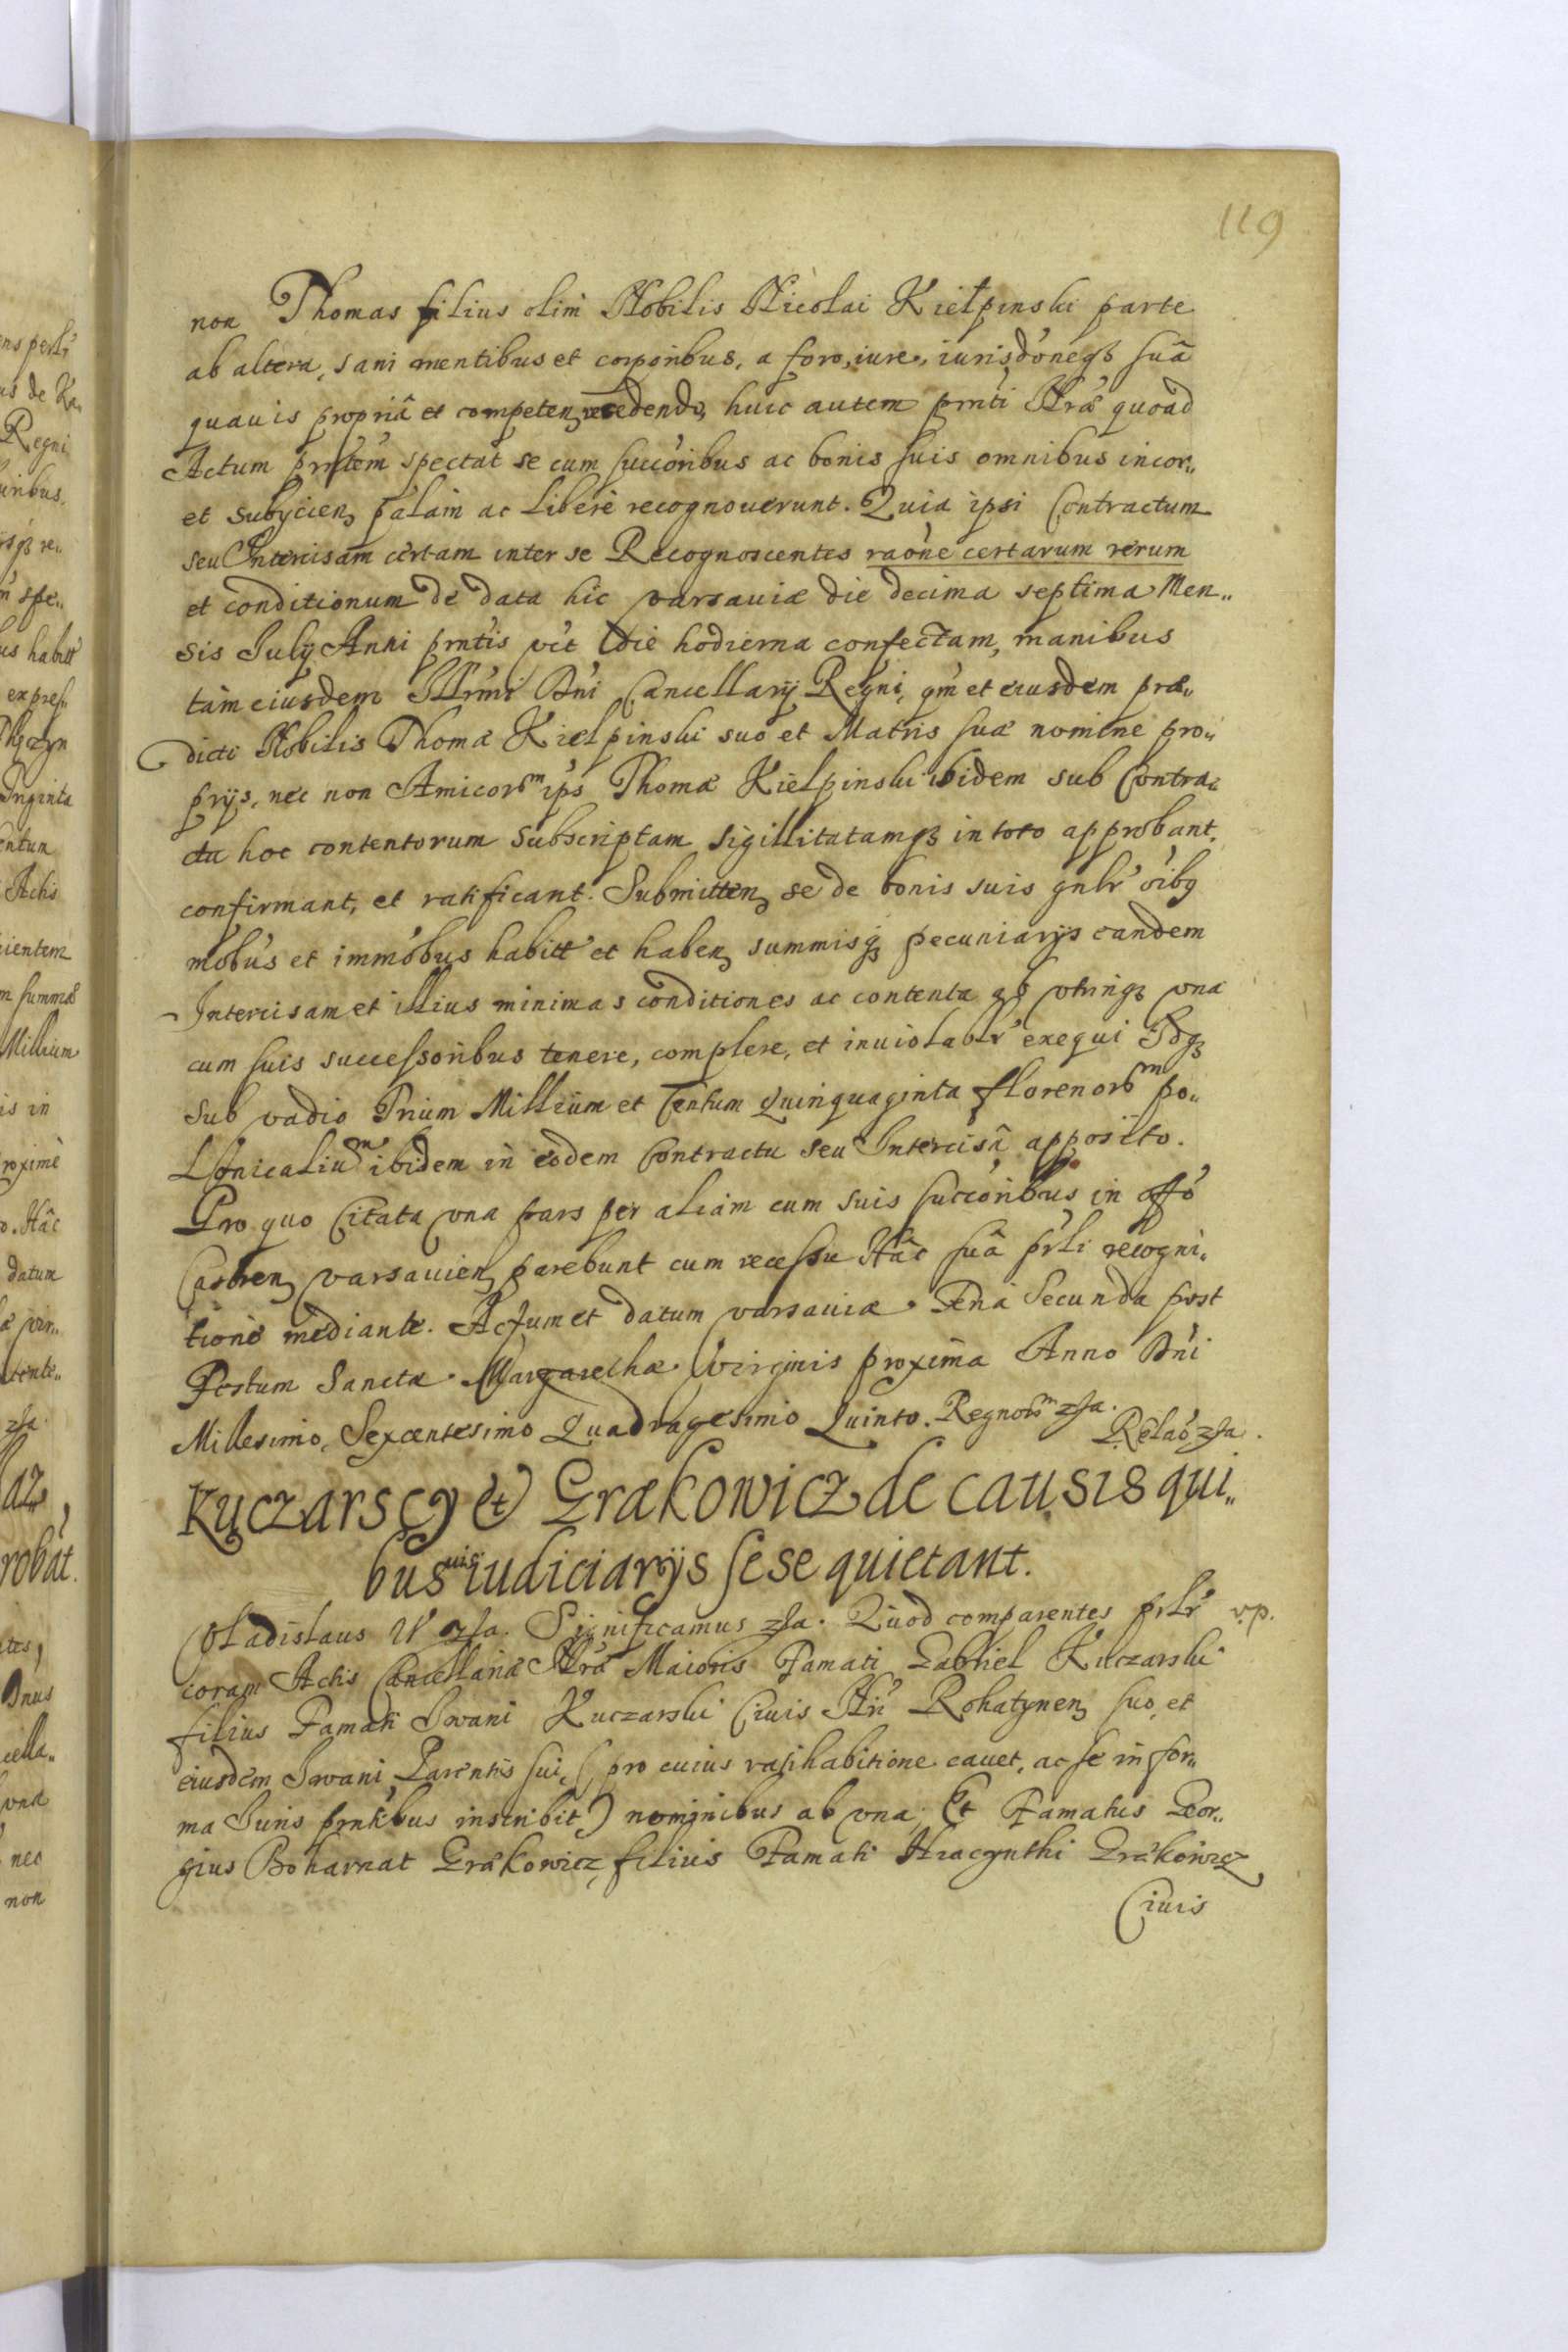 119
non Thomas filius olim Nobilis Nicolai Kiełpinski parte
ab altera, sani mentibus et corporibus, a foro, iure, iurisdoneqȝ suâ
quauis propriâ et competen recedendo, huic autem prnti Nrae quoad
Actum prntem spectat se cum succoribus ac bonis suis omnibus incor„
et subycien palam ac libere recognouerunt. Quia ipsi Contractum
seu Intercisam certam inter se Recognoscentes raone certarum rerum
et conditionum de data hic varsauiæ die decima septima Men„
sis July Anni prntis vti die hodierna confectam, manibus
tam eiusdem Illrmi Dni Cancellarij Regni, qm et eiusdem præ„
dicti Nobilis Thomæ Kiełpinski suo et Matris suæ nomine pro„
prijs, nec non Amicorm ips Thomæ Kiełpinski ibidem sub Contra„
ctu hoc contentorum subscriptam sigillitatamqȝ in toto approbant,
confirmant, et ratificant. Submitten se de bonis suis gnlr oibg
mobus et immobus habitt et haben summisqȝ pecuniarijs eandem
Intercisam et illius minimas conditiones ac contenta qȝ vtrinqȝ vna
cum suis successoribus tenere, complere, et inuiolablr exequi Idqȝ
sub vadio Trium Millium et Centum Quinquaginta florenorm po„
lonicalium ibidem in eodem Contractu seu Intercisâ apposito.
Pro quo Citata vna pars per aliam cum suis succoribus in offo
Castren varsauien parebunt cum recessu Hâc suâ prli recogni„
tione mediante. Actum et datum varsauiæ. Feria Secunda post
Festum Sanctæ Margarethæ Virginis proxima Anno Dni
Millesimo, Sexcentesimo Quadragesimo Quinto. Regnorm zſa.
Relao zſa.
Kuczarscy et Grækowicz de causis qui„
busuis iudiciarijs sese quietant.
Vladislaus IV zſa. Significamus zſa. Quod comparentes prlr v.p.
coram Actis Cancellariæ Nræ Maioris Famati Gabriel Kuczarski
filius Famati Iwani Kuczarski Ciuis Nri Rohatynen suo, et
eiusdem Iwani Parentis sui, (pro cuius ratihabitione cauet, ac se in for„
ma Iuris prntibus inscribit) nominibus ab vna; Et Famatus Geor„
gius Boharnat Grækowicz, filius Famati Hiacynthi Grækowicz
Ciuis